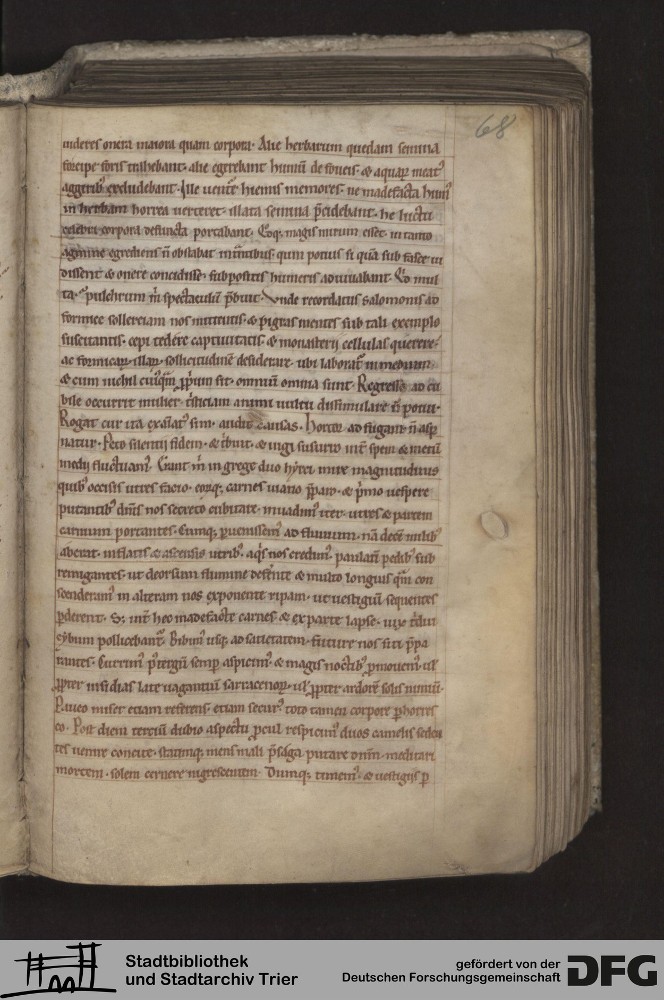 68
uideres onera maiora quam corpora. Alie herbarum quedam semina
forcipe foris trahebant. alie egerebant humū de foueis. & aquaꝝ meatꝰ
aggeribꝰ excludebant. Ille uentˀe hiemis memores. ne madefacta humꝰ
in herbam horrea uerteret. illata semina p̄cidebant. he luctu
celebri corpora defuncta portabant. Eoqꝫ magis mirum esset. in tanto
agmine egrediens n̄ obstabat intrātibus. quin potius si quā sub fasce ui
dissent & onere concidisse. suppositis humeris adiuuabant. Qͥd mul
ta. pulchrum m̄ spectaculū p̄buit. Vnde recordatus salomonis ad
formice sollerciam nos mittentis. & pigras mentes sub tali exemplo
suscitantis. cepi tedere captiuitatis. & monasterii cellulas querere.
ac formicaꝝ. illaꝝ. sollicitudinē desiderare. ubi laboratͬ in medium.
& cum nichil cuiꝰq̄m ꝓprium sit. omniū omnia sunt. Regresso ad cu
bile occurrit mulier. tͥsticiam animi uultu dissimulare n̄ potui.
Rogat cur ita exaīatꝰ sim. audit causas. Hortor ad fugam. n̄ asp̄
natur. Peto silentii fidem. & tͥbuit. & iugi susurro intˀ spem & metū
medii fluctuamꝰ. Erant m̄ in grege duo hyrci mire magnitudinis
quibꝰ occisis utres facio. eorūqꝫ carnes uiatico p̄paro. & pͥmo uespere
putantibꝰ dn̄is nos secreto cubitare. inuadimꝰ iter. utres & partem
carnium portantes. Cumqꝫ ꝑuenissemꝰ ad fluuium. nā decē milibꝰ
aberat. inflatis & ascensis utribꝰ. aqͥs nos credimꝰ. paulatī pedibꝰ sub
remigantes. ut deorsum flumine deferente & multo longius quā con
scenderamꝰ in alteram nos exponente ripam. ut uestigiū sequentes
ꝑderent. Sꝫ intˀ hec madefacte carnes & ex parte lapse. uix tͥdui
cybum pollicebantͬ. Bibimꝰ usqꝫ ad satietatem. future nos siti p̄pa
rantes. Currimꝰ pͦ tergū semꝑ aspicimꝰ. & magis noctibꝰ ꝓmouemꝰ. ul̓
ꝓpter insidias late uagantiū sarracenoꝝ. ul̓ ꝓpter ardorē solis nimiū.
Paueo miser etiam referens. etiam securꝰ toto tamen corpore ꝑhorres
co. Post diem tercium dubio aspectu ꝓcul respicimꝰ duos camelis seden
tes uenire concite. statimqꝫ mens mali p̄saga. putare dn̄m. meditari
mortem. solem cernere nigrescentem. Dumqꝫ timemꝰ. & uestigiis ꝑ
Stadtbibliothek
und Stadtarchiv Trier
gefördert von der
Deutschen Forschungsgemeinschaft
DFG